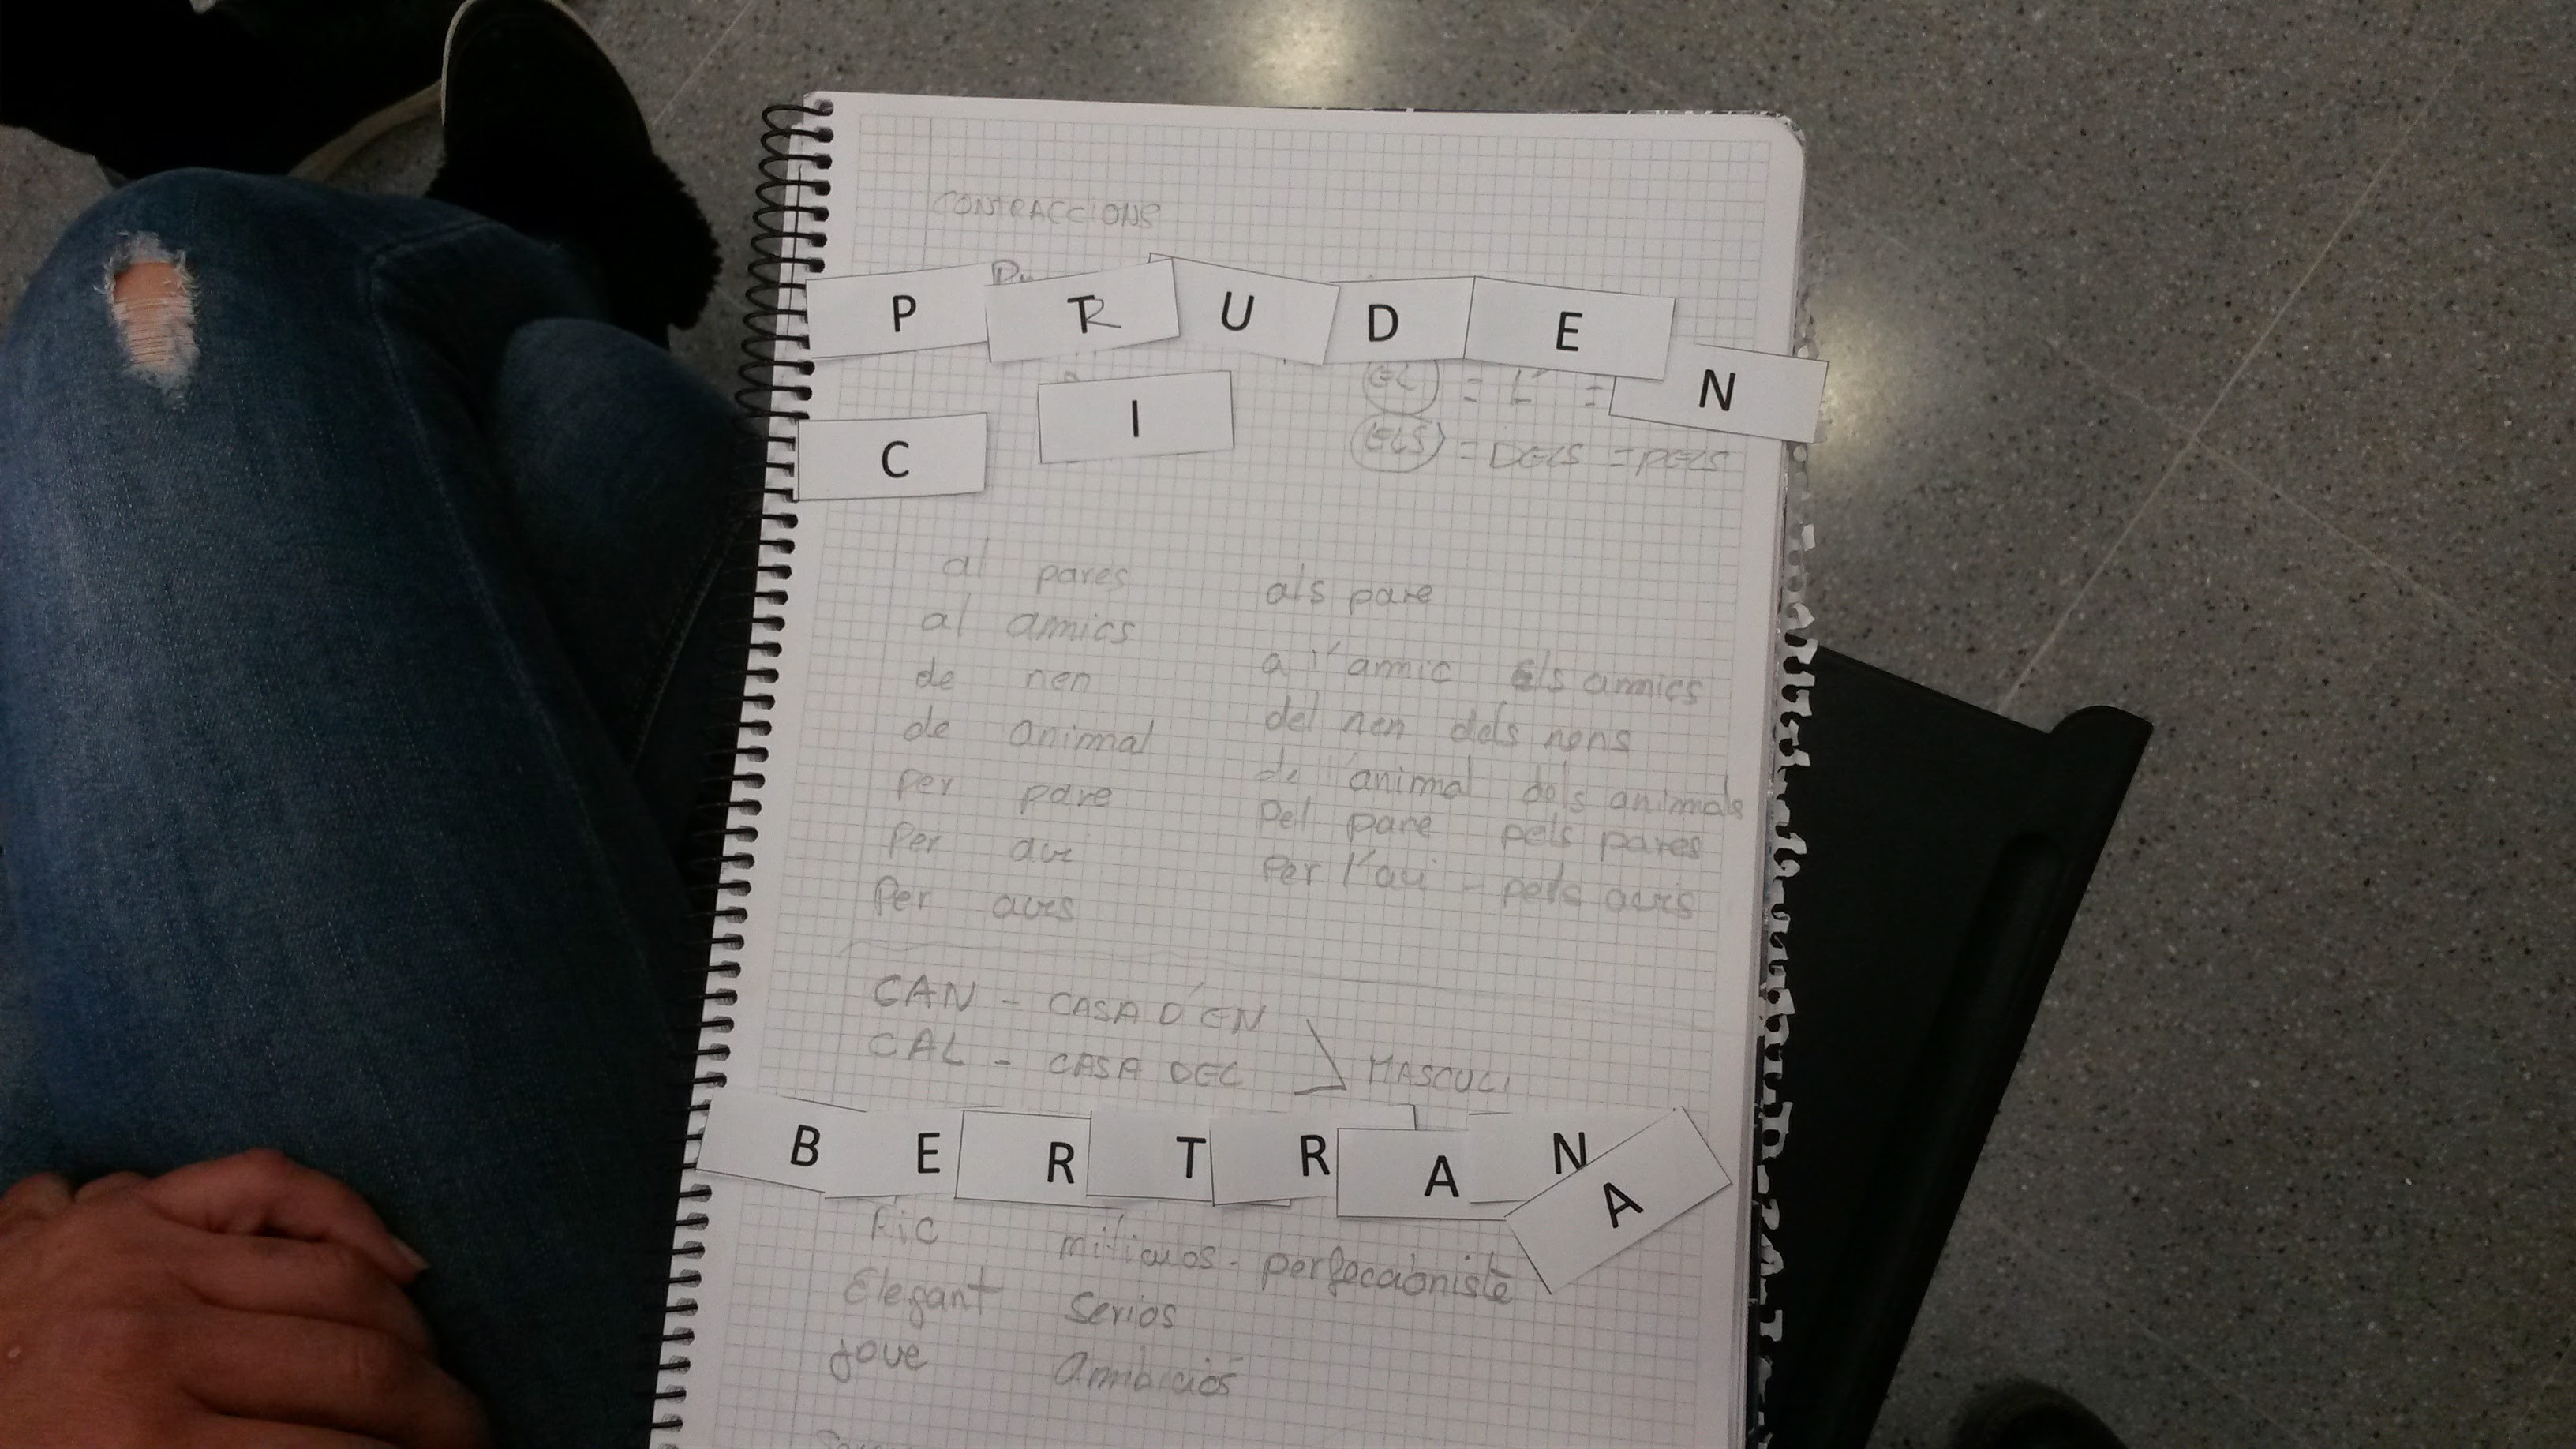 CONTRACCIONS
P R U D E N
C I
EL = L' =
ELS = DELS = PELS
al pares als pare
al amics
a l'amic els amics
de nen
del nen dels nens
de animal
de l'animal dels animals
per pare
Pel pare pels pares
Per avi
Per l'avi - pels avis
Per avis
CAN - CASA D'EN
CAL - CASA DEL
MASCULI
B E R T R A N A
Ric
perfeccioniste
Elegant Serios
jove Ambiciós